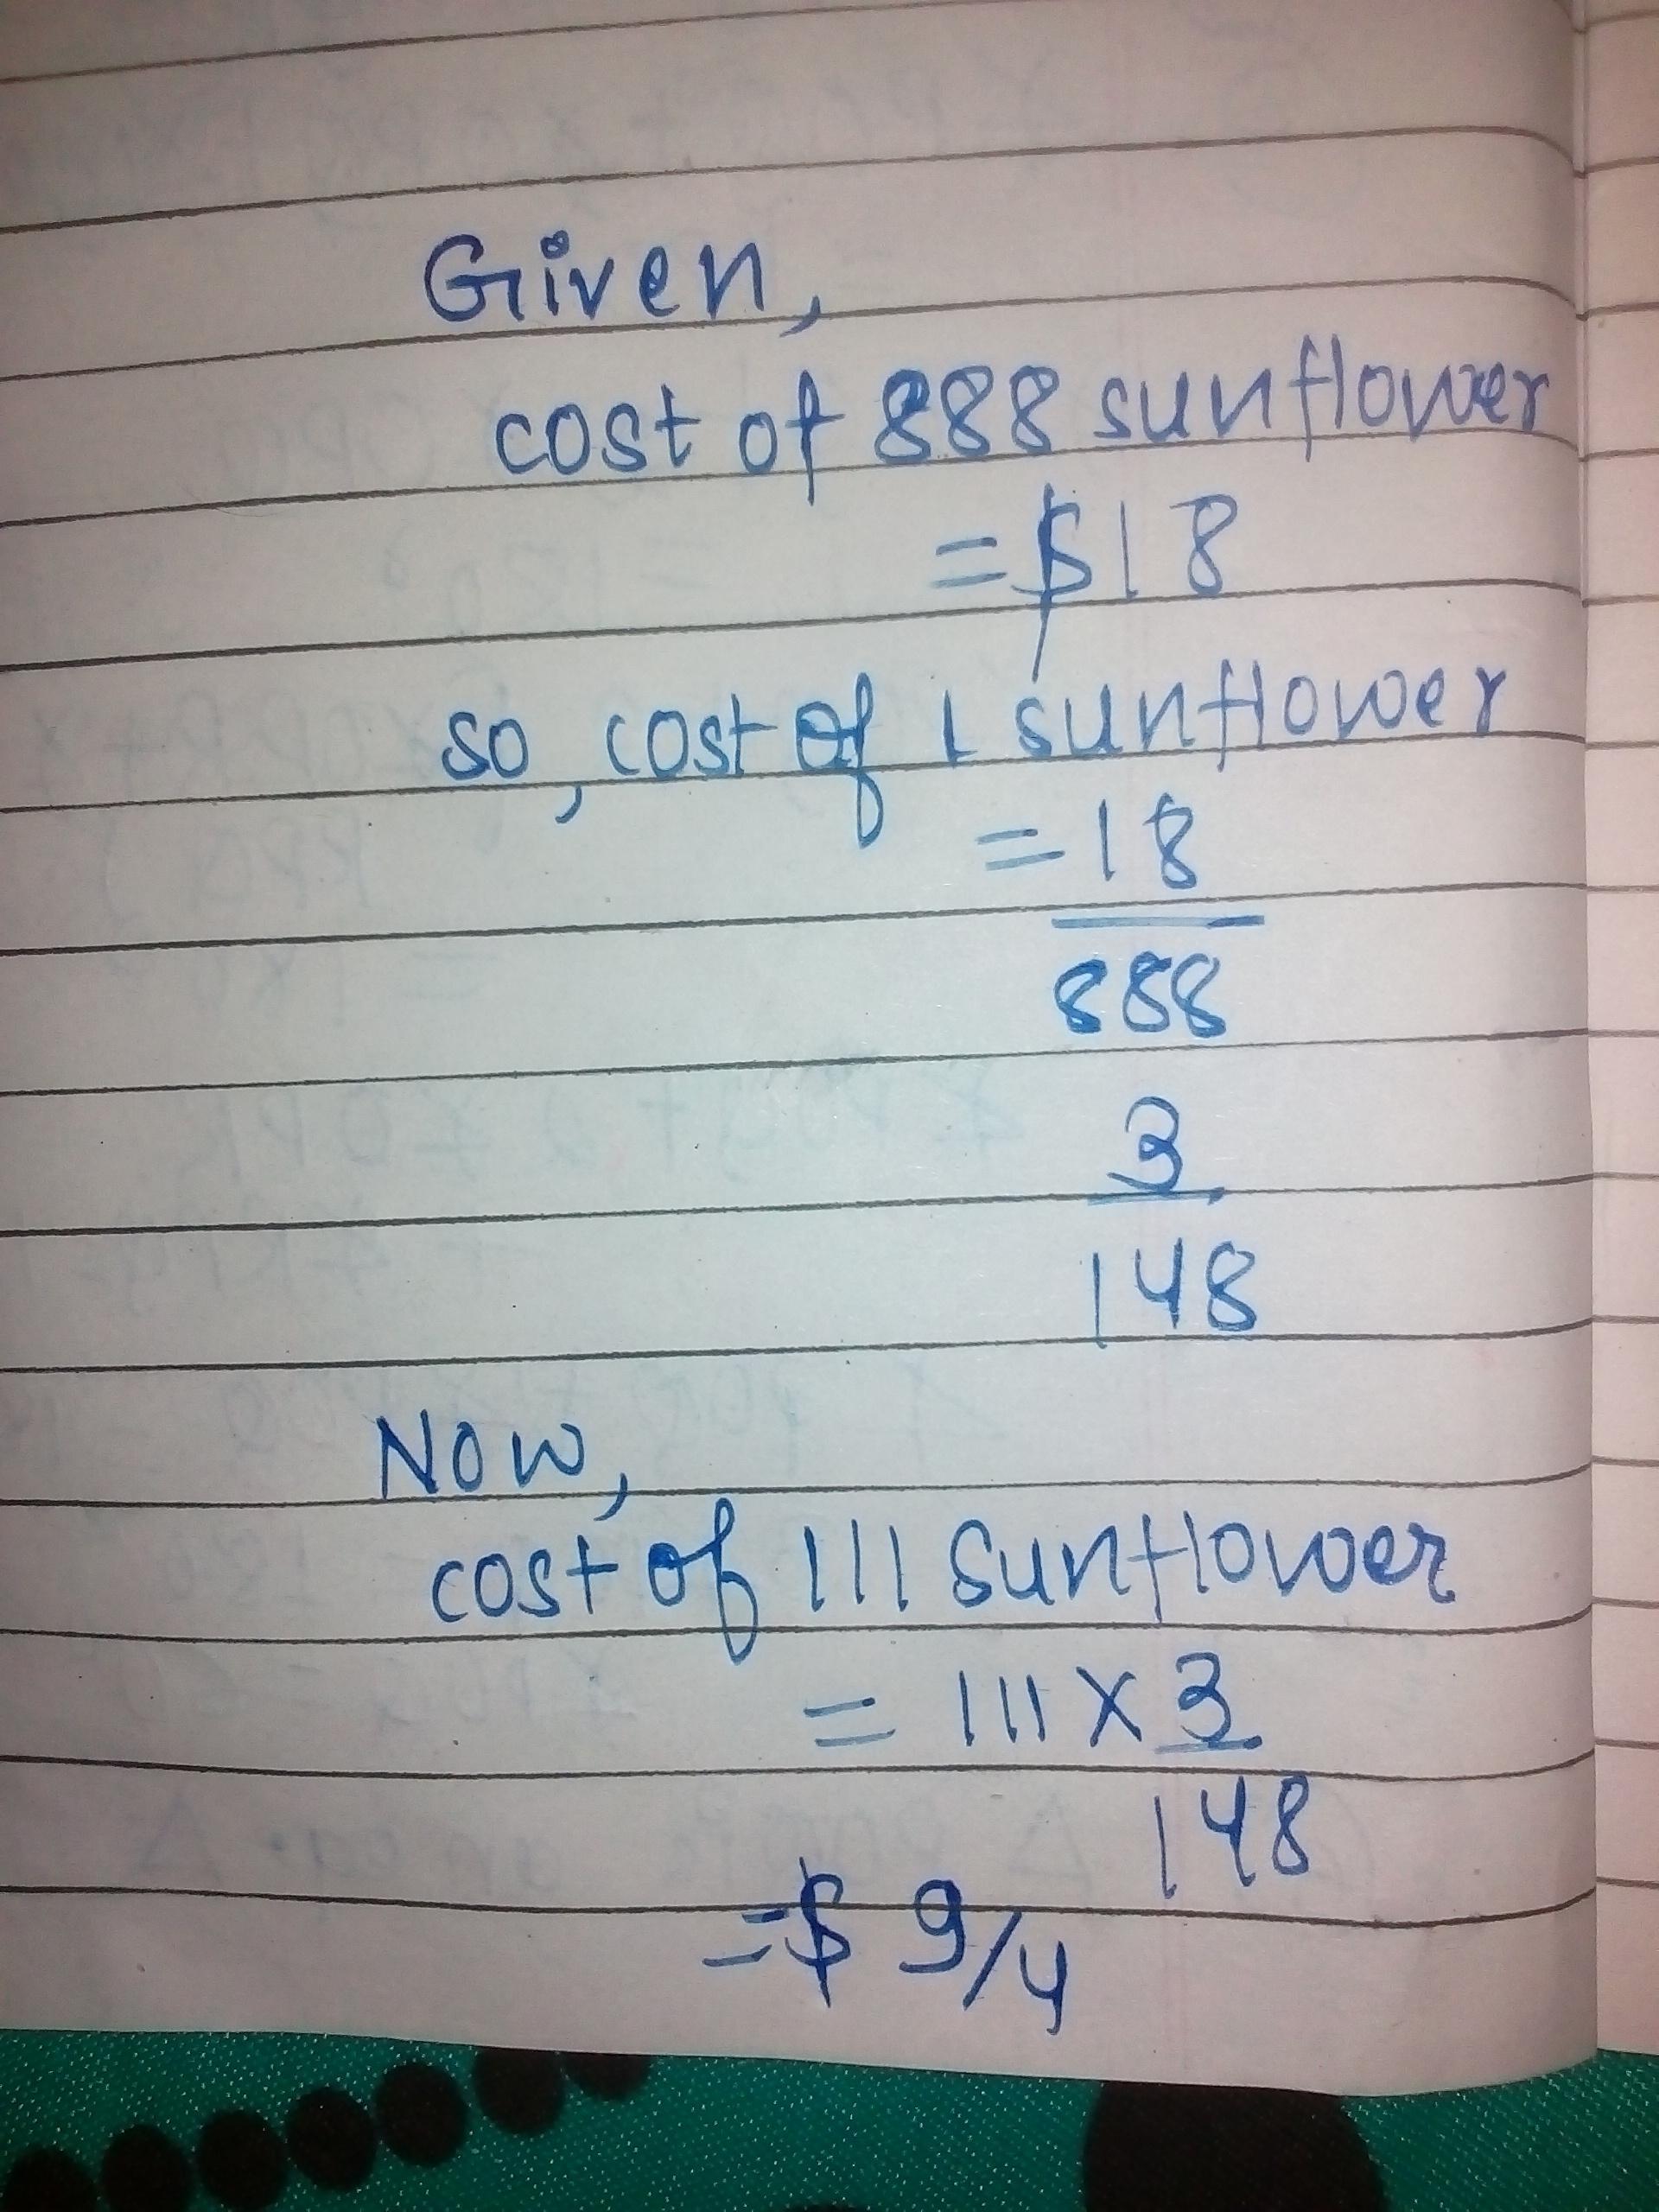 Given,
cost of 888 sunflower
= $18
so, cost of 1 sunflower
= 18
888
3
148
Now,
cost of 111 sunflower
= 111 × 3
148
= $ 9/4